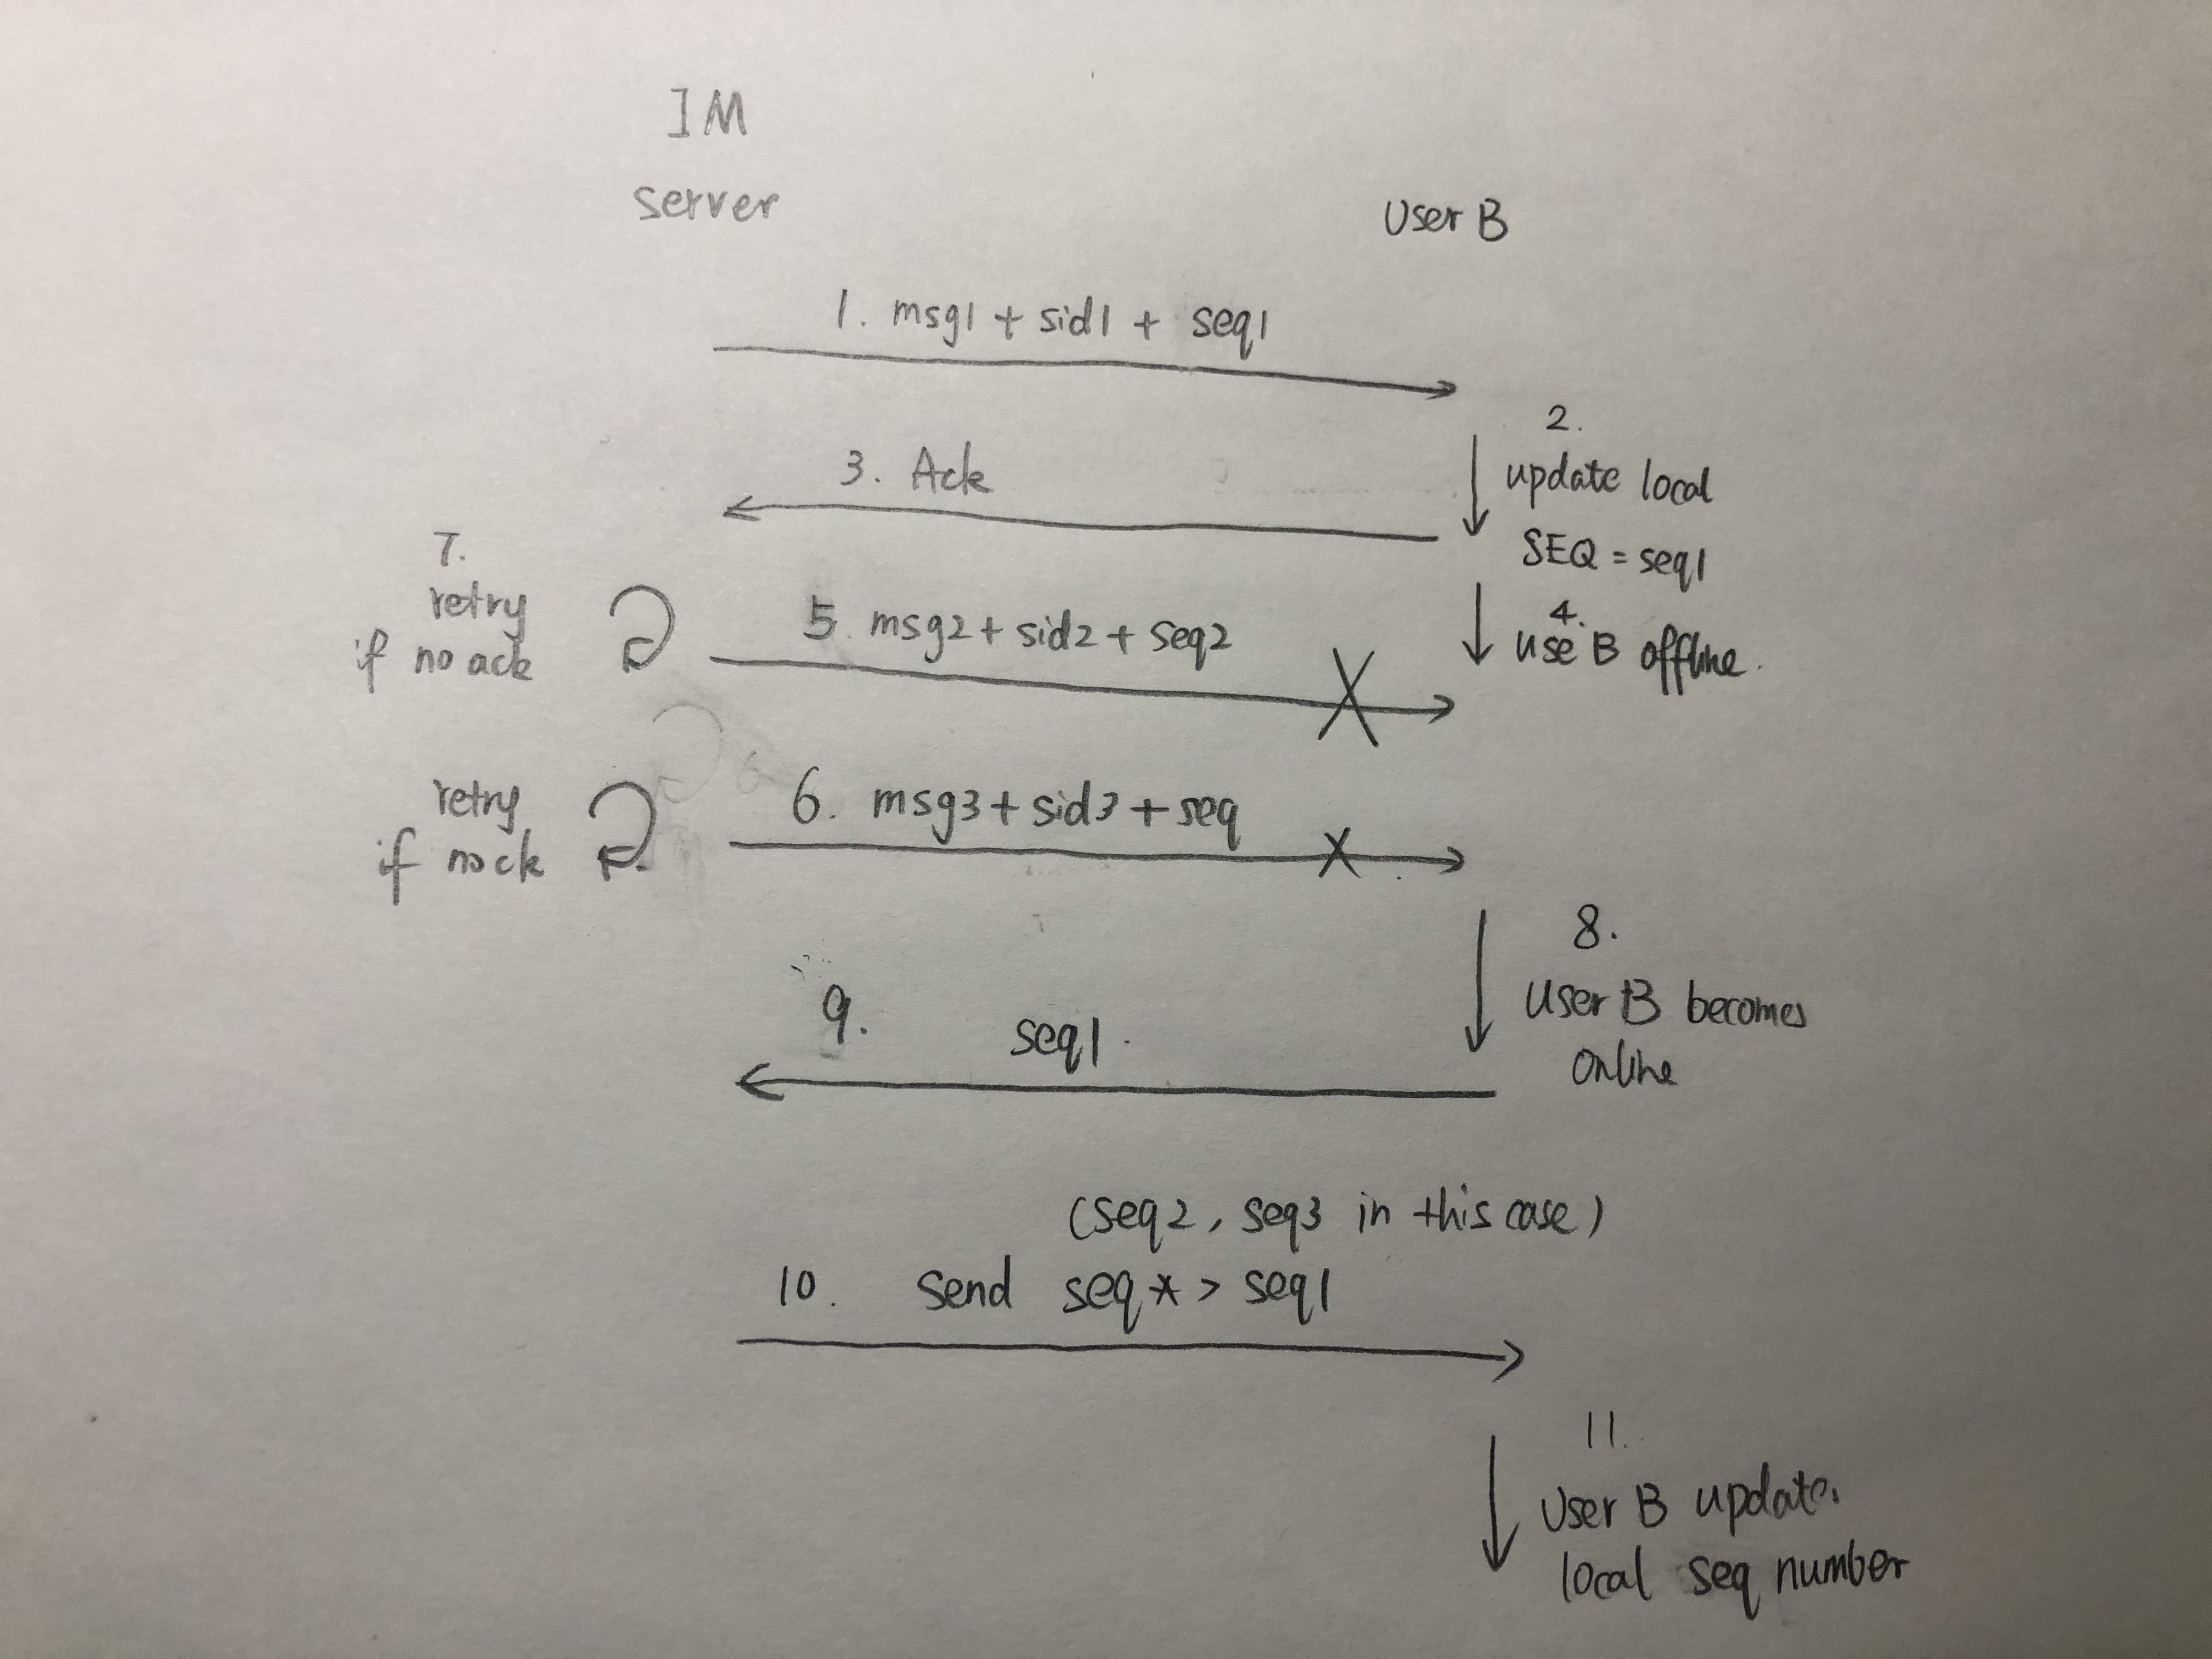 IM
server
User B
1. msg1 + sid1 + seq1
2.
update local
SEQ = seq1
3. Ack
4.
use B offline.
5. msg2 + sid2 + seq2
7.
retry
if no ack
6. msg3 + sid3 + seq
retry
if no ck
8.
user B becomes
online
9.
seq1.
(seq2, seq3 in this case)
10. Send seq* > seq1
11.
User B update
local seq number